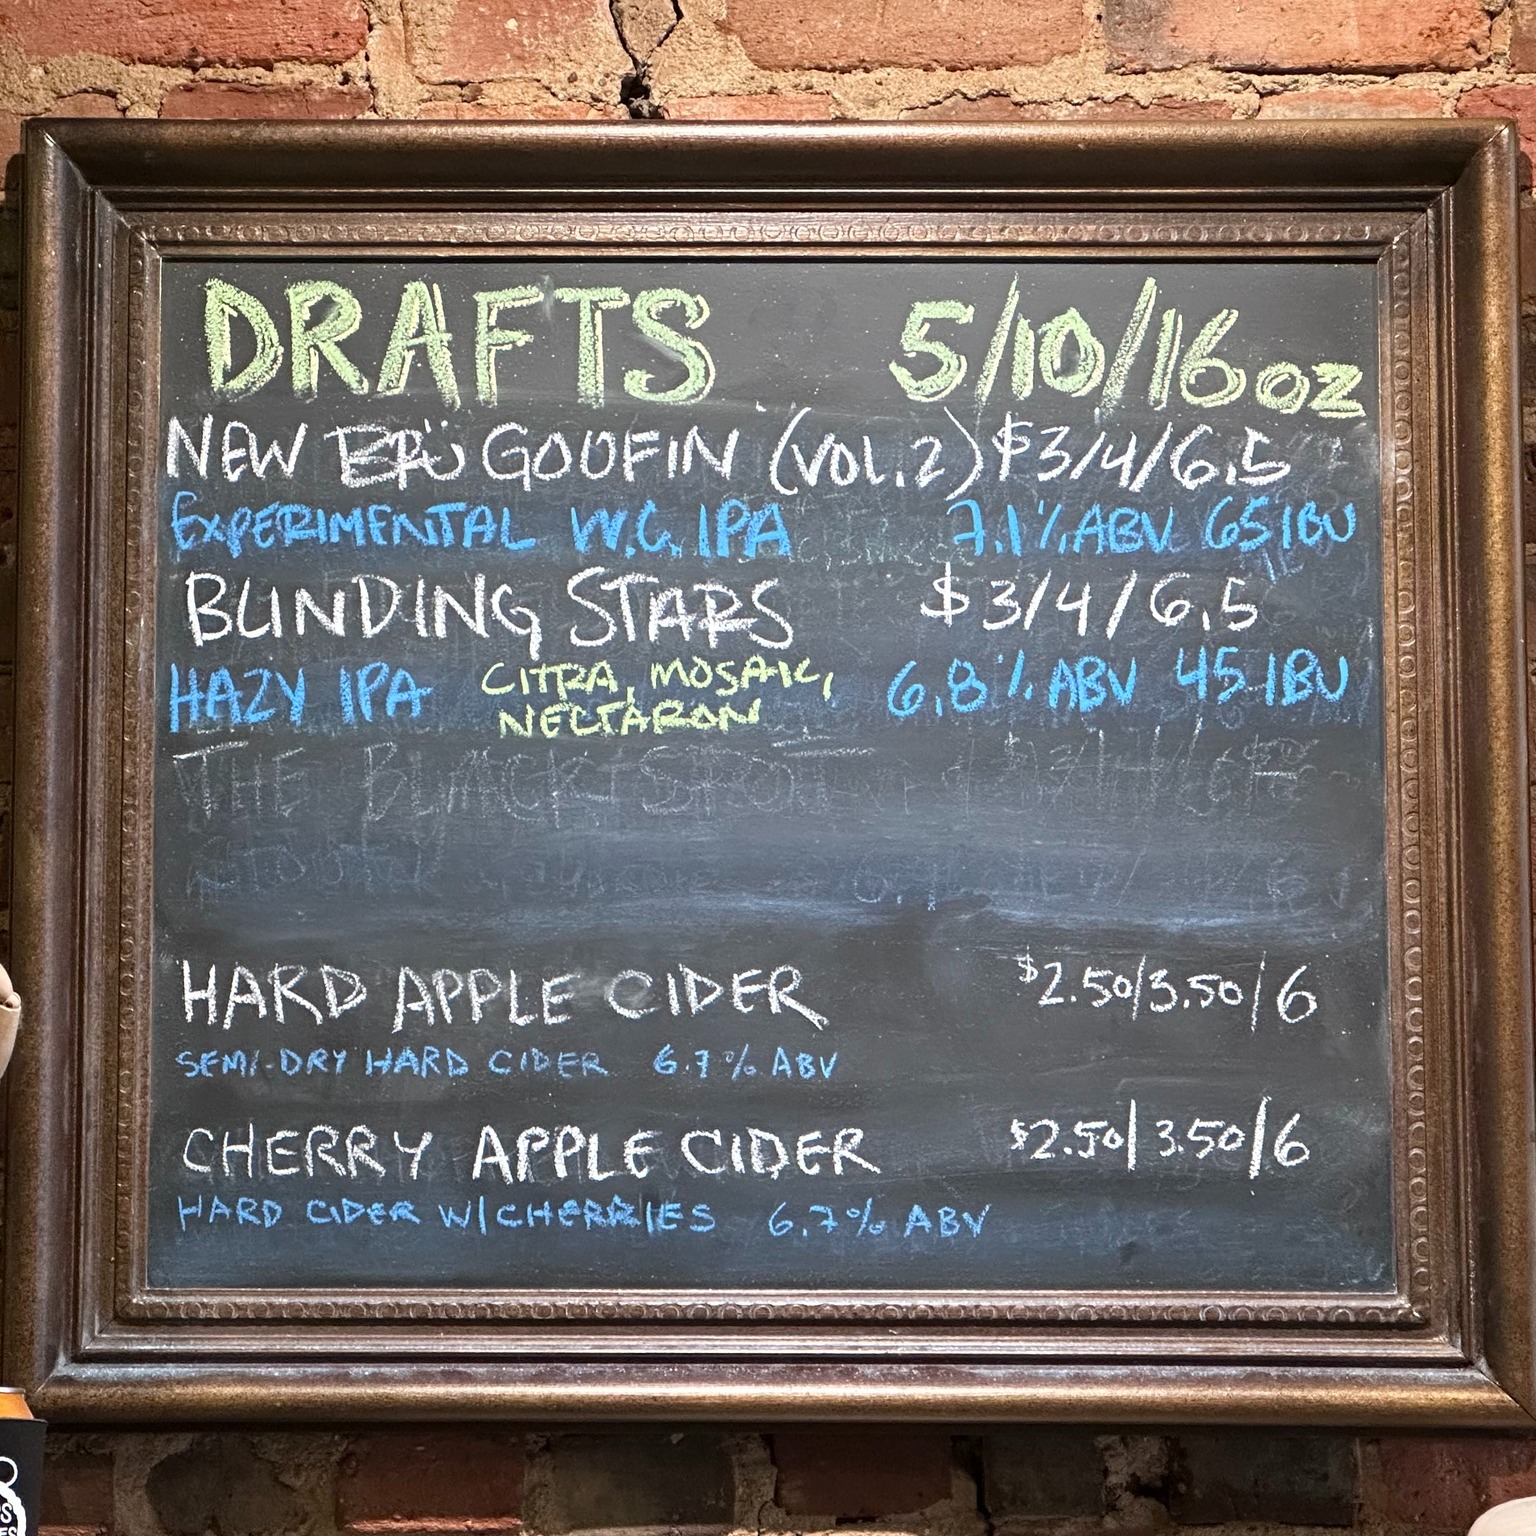 DRAFTS 5/10/16oz
NEW BRÜ GOOFIN (VOL.2) $3/4/6.5
EXPERIMENTAL W.C. IPA 7.1% ABV 65 IBU
BLINDING STARS $3/4/6.5
HAZY IPA CITRA, MOSAIC, 6.8% ABV 45 IBU
NECTARON
THE BLACK SPOT
HARD APPLE CIDER $2.50/3.50/6
SEMI-DRY HARD CIDER 6.7% ABV
CHERRY APPLE CIDER $2.50/3.50/6
HARD CIDER W/CHERRIES 6.7% ABV